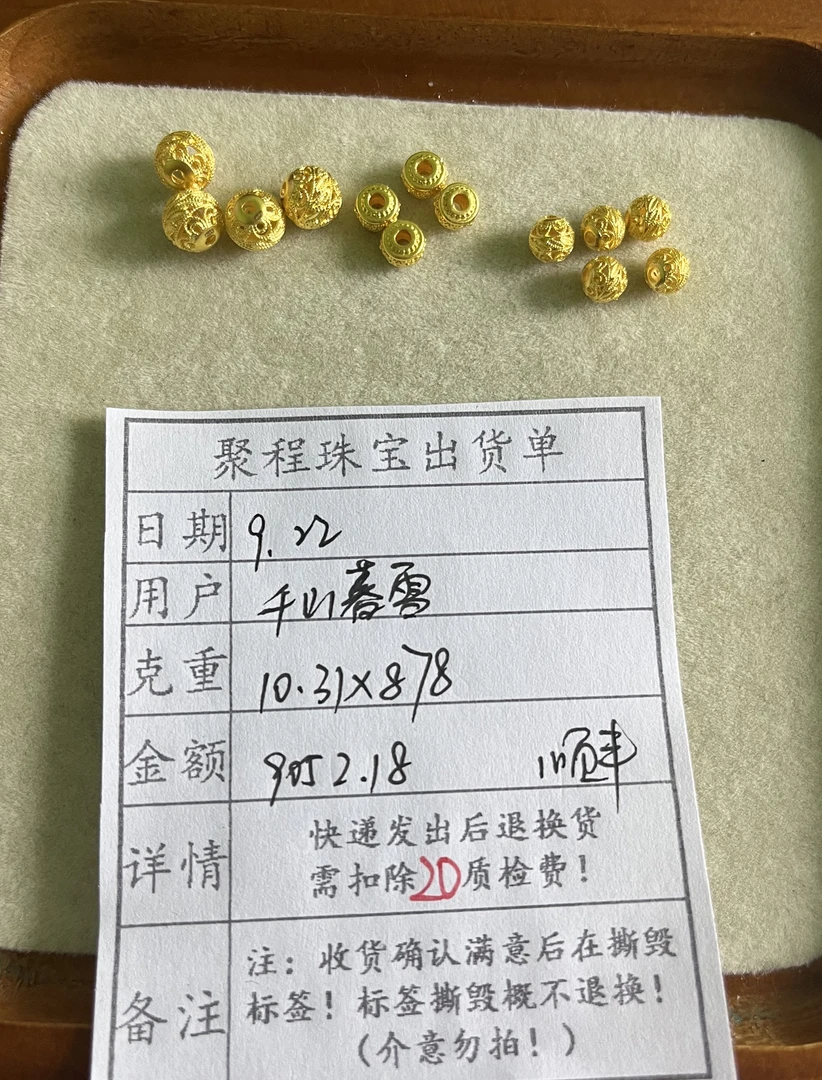 聚程珠宝出货单
日期 9.22
用户 千山暮雪
克重 10.31×878
金额 9052.18 顺丰
详情 快递发出后退换货
需扣除20质检费！
备注 注：收货确认满意后在撕毁
标签！标签撕毁概不退换！
（介意勿拍！）